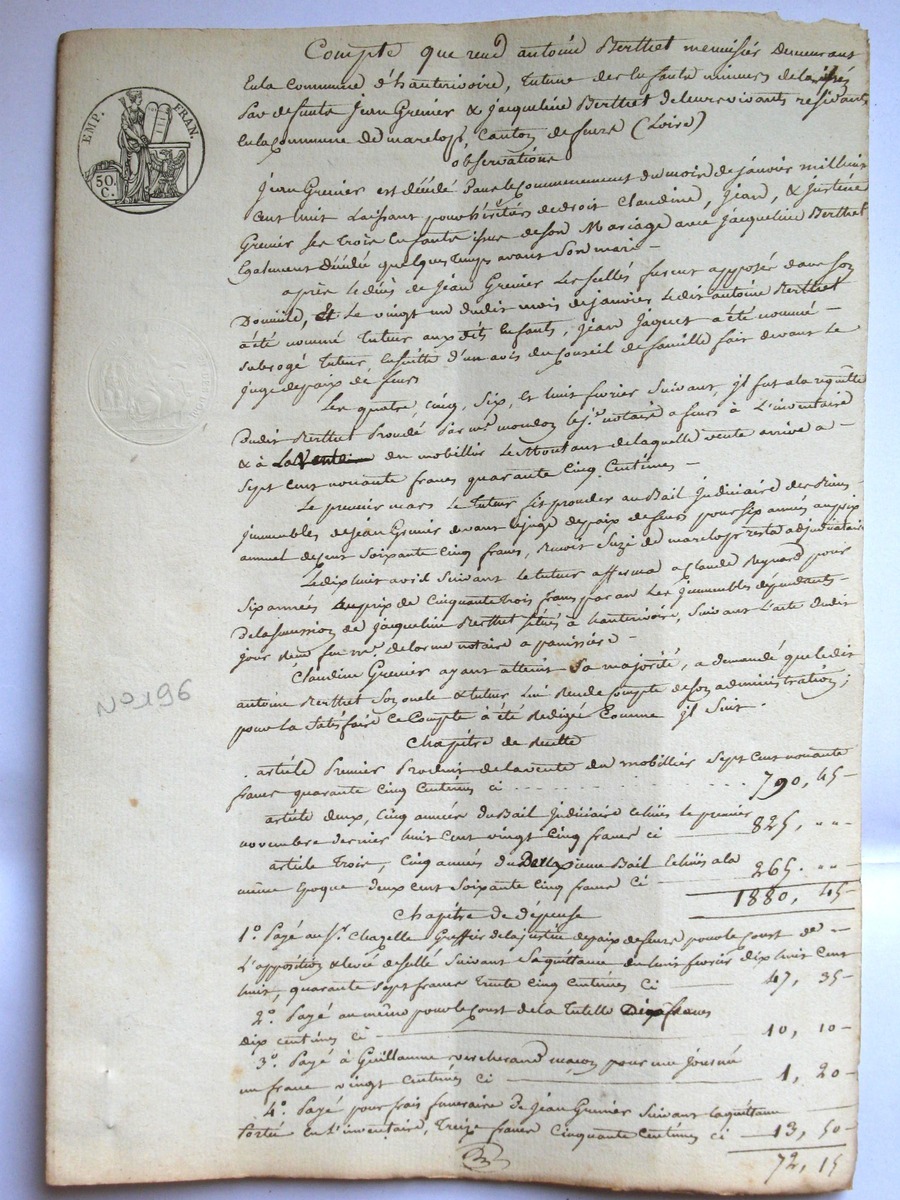 EMP. FRAN.
50. C.
Compte que rend antoine Berthet menuisier Demeurant
En la Commune d'hauterivoire, tuteur des Enfants mineurs délaissés
Par defunts Jean Grenier & Jacqueline Berthet de leurs vivants residants
En la Commune de marclopt, Canton de feurs (Loire)
observations
Jean Grenier est décédé Dans le Commencement du mois de janvier mil huit
Cent huit Laissant pour héritiers de droit Claudine, Jean, & justine
Grenier ses trois Enfants issus de son Mariage avec Jacqueline Berthet
Egalement décédée quelques temps avant son mari –
après le décès de Jean Grenier les scellés furent apposés dans son
Domicile, Et le vingt un dudit mois de janvier le dit antoine Berthet
a été nommé tuteur aux dits Enfants, Jean Jaquet a été nommé –
subrogé tuteur, Ensuitte d'un avis du Conseil de famille fait devant le
juge de paix de feurs
Les quatre, cinq, six, et huit fevrier suivant, il fut a la requête
Dudit Berthet Procédé Par me mondon notaire a feurs à L'inventaire
& à La Vente du mobillier Le Montant de laquelle vente arrive a –
Sept Cent nonante francs quarante Cinq Centimes –
Le premier mars le tuteur fit proceder au Bail judiciaire des
immeubles de Jean Grenier devant le juge de paix de feurs pour six années au prix
annuel de Cent Soixante Cinq francs, Benoit Suzé de marclopt resta adjudicataire
Le dix huit avril suivant le tuteur afferma a Claude Reynard pour
six années au prix de Cinquante trois francs par an Les immeubles dépendants –
De la Succession de Jacqueline Berthet situés a hauterivoire, Suivant L'acte dudit
jour Reçu par me. delorme notaire a panissière –
Claudine Grenier ayant atteint Sa majorité, a demandé que ledit
antoine Berthet son oncle & tuteur lui Rende Compte de son administration;
pour la Satisfaire ce Compte à été Redigé Comme il Suit.
Chapitre de Recette
article Premier Produit de la vente du mobillier Sept Cent nonante
francs quarante Cinq Centimes ci 790, 45 –
article deux, Cinq années du Bail judiciaire échües le premier
novembre dernier huit Cent vingt Cinq francs ci 825, " "
article trois, Cinq années du Deuxieme Bail échües a la
même époque deux cent Soixante Cinq francs Ci 265. " "
1880, 45 –
Chapitre de dépense
1° Payé au Sr. Chazelle Greffier de la justice de paix de feurs pour le Cout de –
L'apposition & levée de scellé Suivant Sa quittance du huit fevrier dix huit Cent
huit, quarante Sept francs Trente Cinq Centimes Ci 47, 35 –
2° Payé au même pour le Cout de la Tutelle Dix francs
dix centimes ci 10, 10 –
3° Payé à Guillaume vercherand maçon pour une journée
un franc vingt Centimes Ci 1, 20 –
4° Payé pour frais funeraire de Jean Grenier Suivant la quittance
Portée en L'inventaire, Treize francs Cinquante Centimes ci 13, 50 –
72, 15
No 196